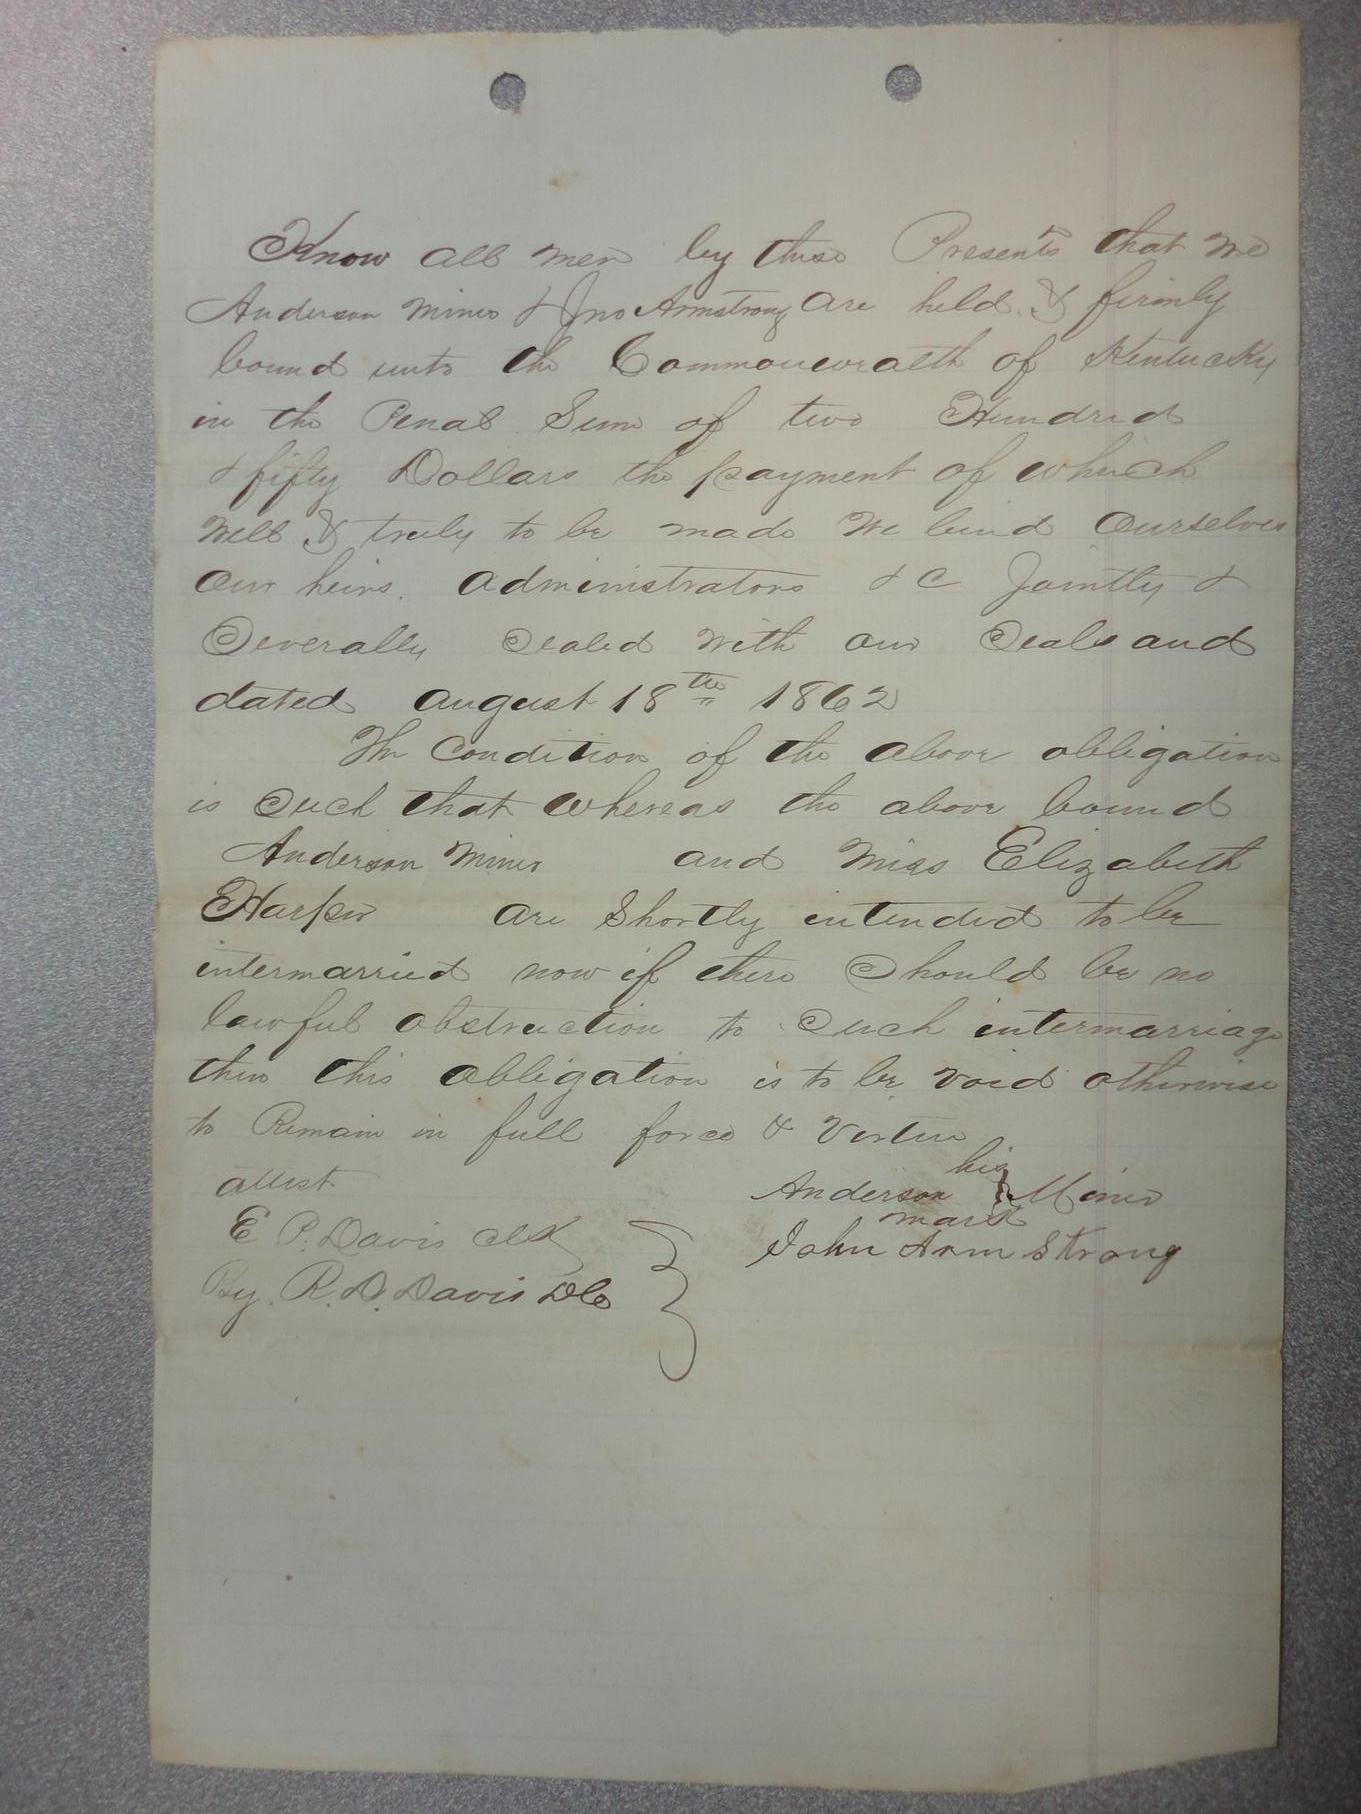 Know all men by these Presents that we
Anderson Minor & Jno Armstrong are held & firmly
bound unto the Commonwealth of Kentucky
in the Penal Sum of two Hundred
& fifty Dollars the payment of which
Well & truly to be made We bind Ourselves
Our heirs. administrators & C Jointly &
Severally Sealed with our Seals and
dated august 18th 1862
The Condition of the above obligation
is Such that whereas the above bound
Anderson Minor and Miss Elizabeth
Harper are Shortly intended to be
intermarried now if there Should be no
lawful obstruction to Such intermarriage
then this obligation is to be void otherwise
to Remain in full force & Virtue
attest
his
Anderson Minor
mark
E P. Davis Clk
John Arm Strong
By. R. D. Davis DC